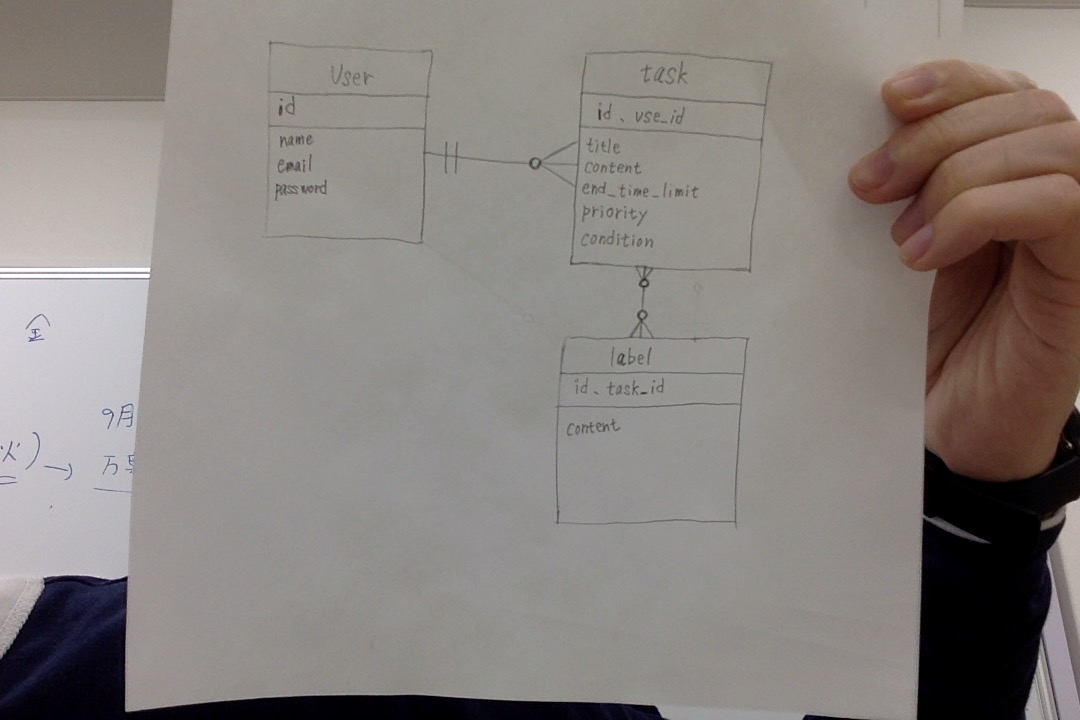 User
id
name
email
password
task
id、vse_id
title
content
end_time_limit
priority
condition
label
id、task_id
content
9月